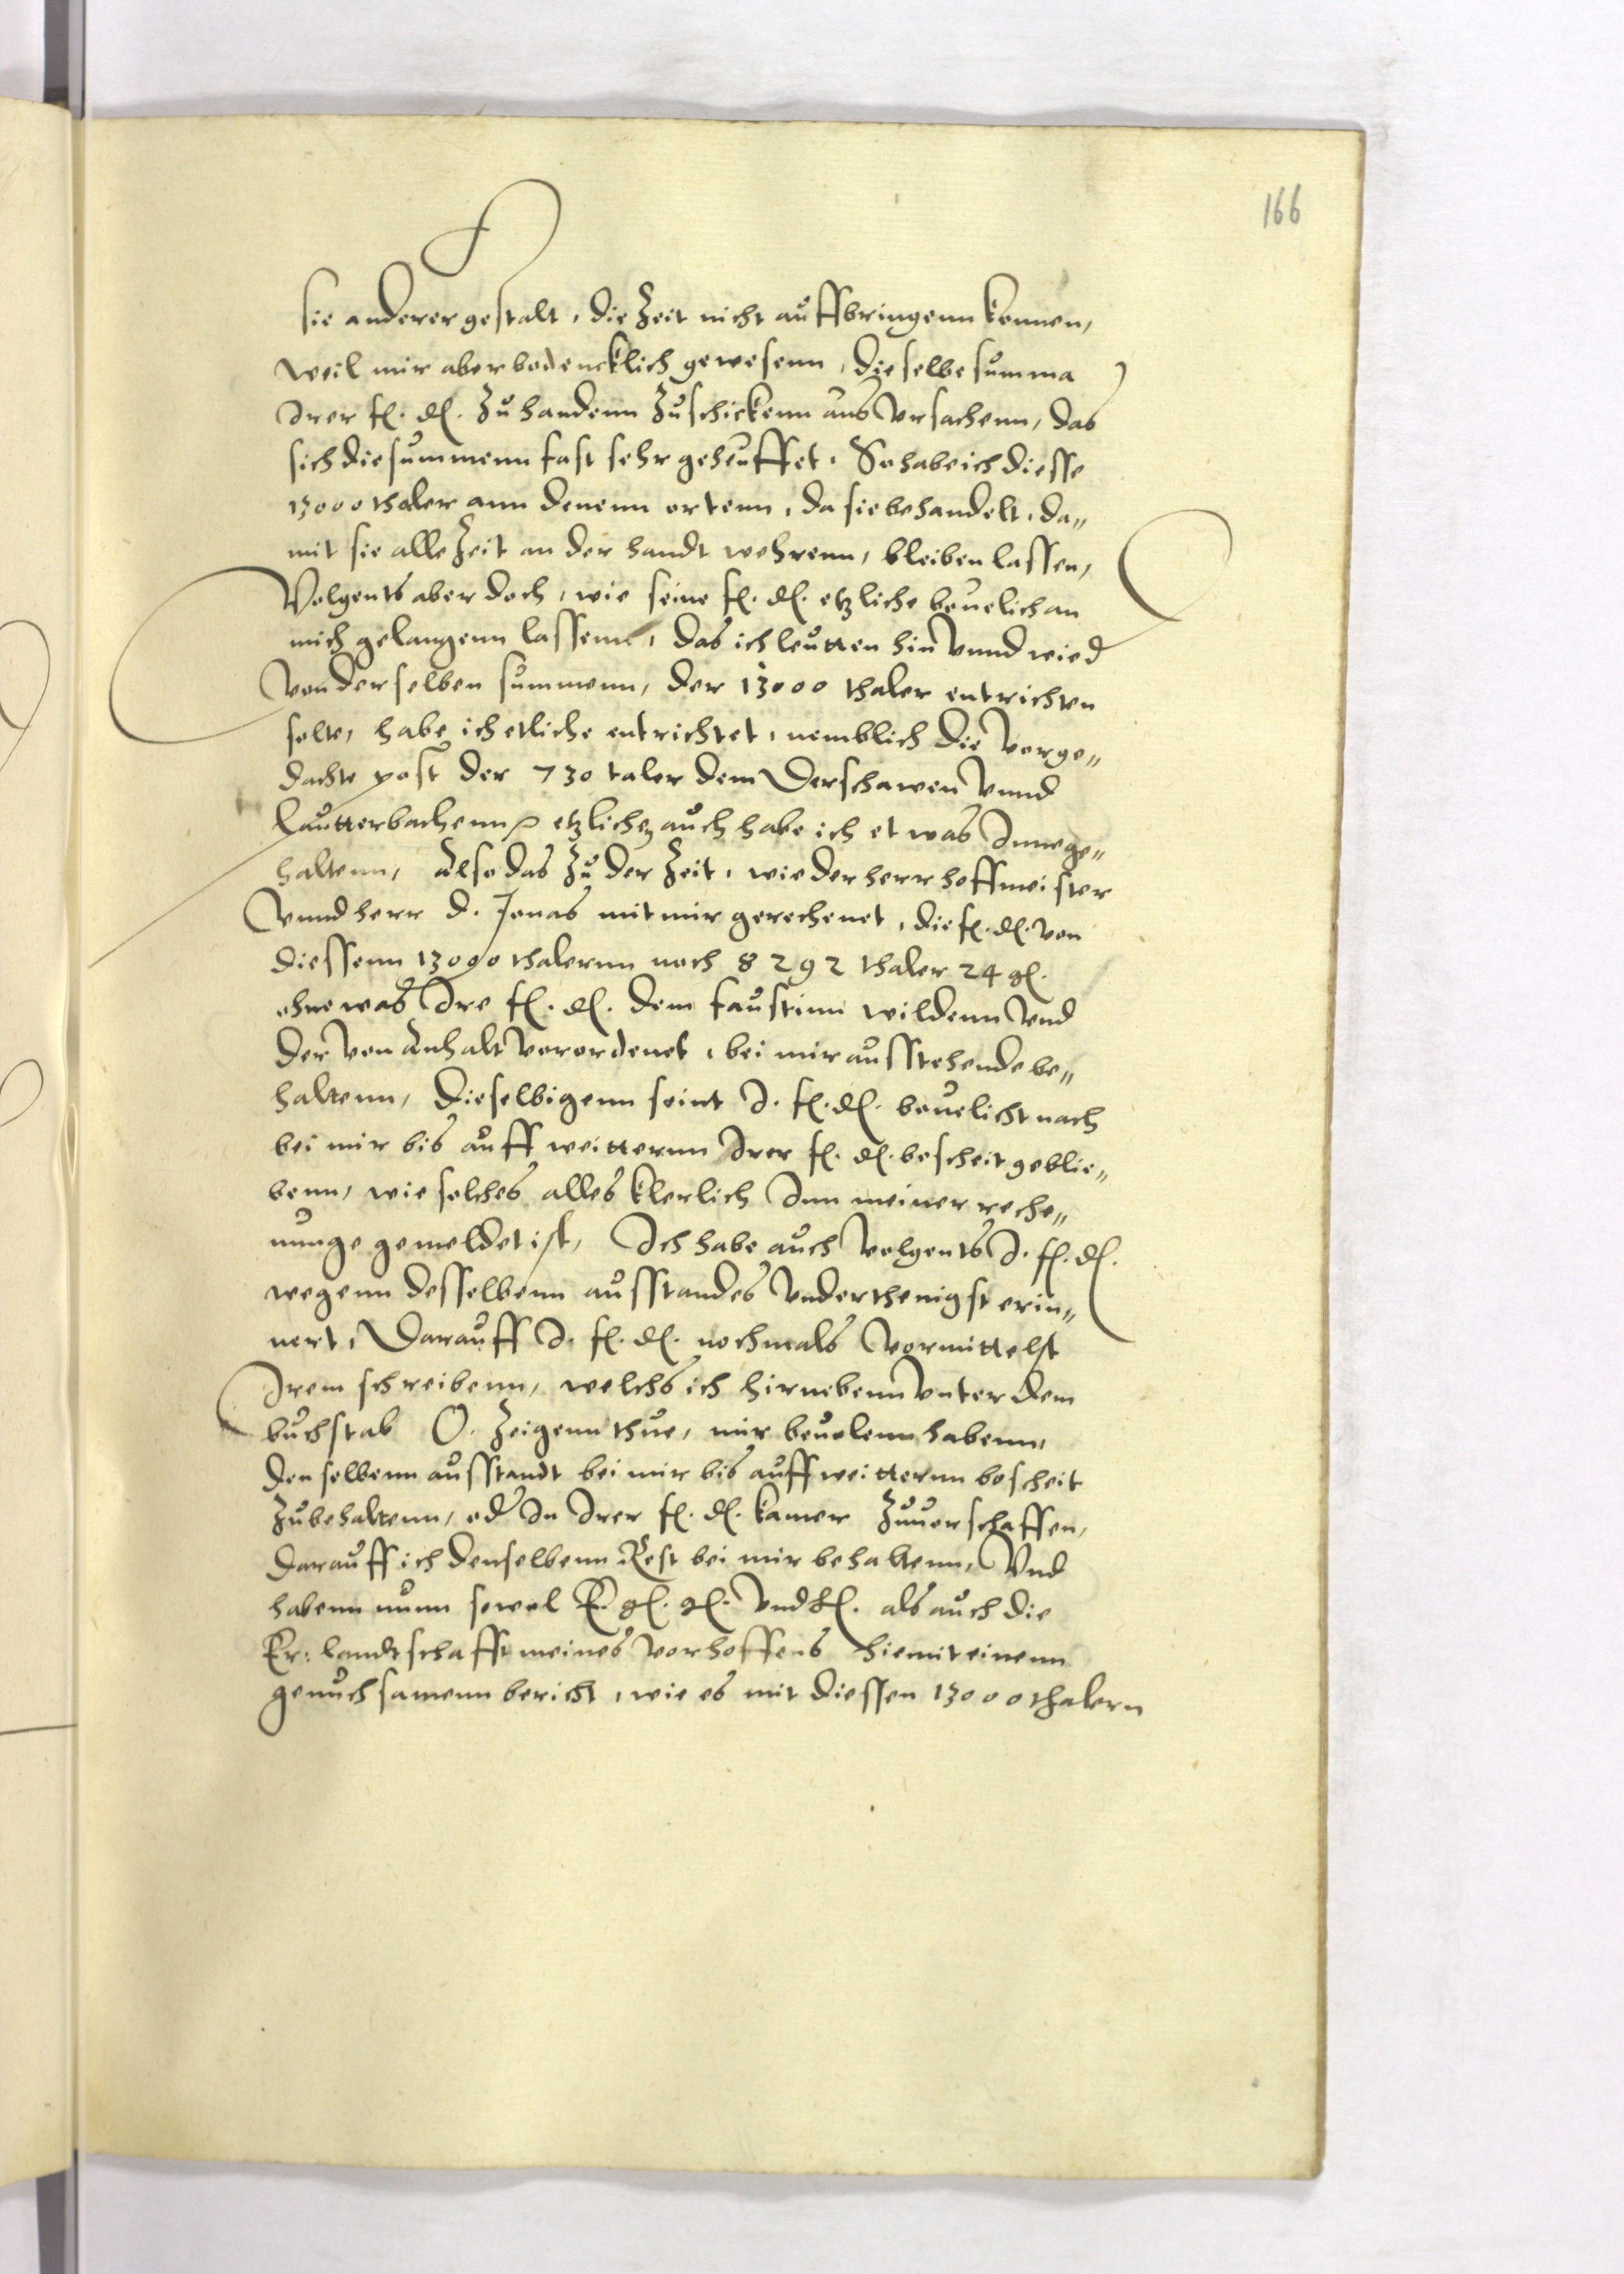 166
sie anderer gestalt, die Zeit nicht auffbringenn kennen,
weil mir aber bedencklich gewesenn, dieselbe summa
Irer f. d. Zu handenn Zuschickenn aus Ursachenn, das
sich die summenn fast sehr geheuffet. So habe ich diesse
13000 thaler ann denenn ortenn, da sie behandelt, da„
mit sie alle Zeit an der handt wehrenn, bleiben lassen,
Volgents aber doch, wie seine f. d. etzliche beuelich an
mich gelangenn lassenn, das ich leutten hin Vnnd wied
Von derselben summenn, der 13000 thaler entrichten
solte, habe ich etliche entrichtet, nemblich die Vorge„
dachte post der 730 taler dem Derschawen Vnnd
Lautterbachenn etzliche, auch habe ich etwas Innege„
haltenn, Also das Zu der Zeit, wie der herr hoffmeister
Vnnd herr D. Jonas mit mir gerechenet, die f. d. von
diessenn 13000 thalernn noch 8292 thaler 24 gl.
ohne was Ire f. d. dem faustinn wildenn Vnd
der von Anhalt Verordenet, bei mir ausstehende be„
haltenn, dieselbigenn seint I. f. d. beuelicht nach
bei mir bis auff weitternn Irer f. d. bescheit geblie„
benn, wie solches alles klerlich Inn meiner reche„
nunge gemeldet ist, Ich habe auch Volgents I. f. d.
wegenn desselbenn ausstandes Vnderthenigst erin„
nert, Darauff I. f. d. nochmals Vormittelst
Irem schreibenn, welchs ich hirnebenn Vnter dem
buchstab O. Zeigenn thue, mir beuolenn habenn,
denselbenn ausstandt bei mir bis auff weitternn bescheit
Zubehaltenn, oder In Irer f. d. kamer Zuuerschaffen,
Darauff ich denselbenn Rest bei mir behaltenn, Vnd
habenn nunn sowol E. g. Vnd als auch die
Er: landtschafft meines Vorhoffens hiemit einenn
genuchsamenn bericht, wie es mit diessen 13000 thalern